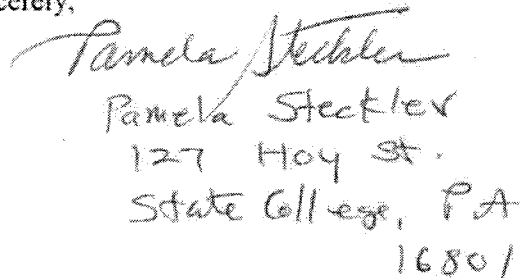 Sincerely,
Pamela Steckler
Pamela Steckler
127 Hoy St.
State College, PA
16801